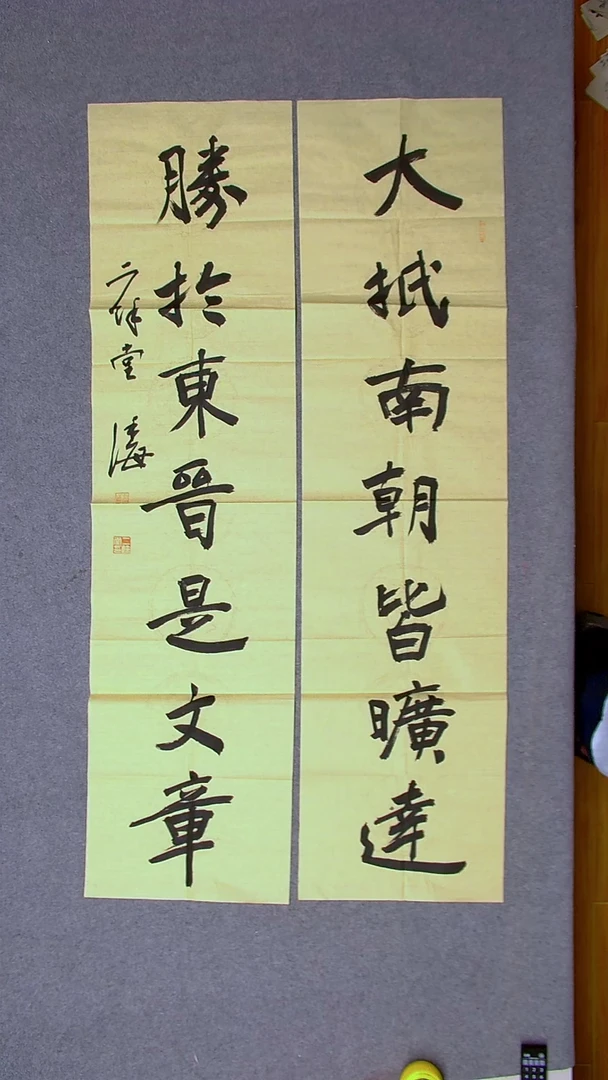 大抵南朝皆曠達
勝於東晉是文章
堂